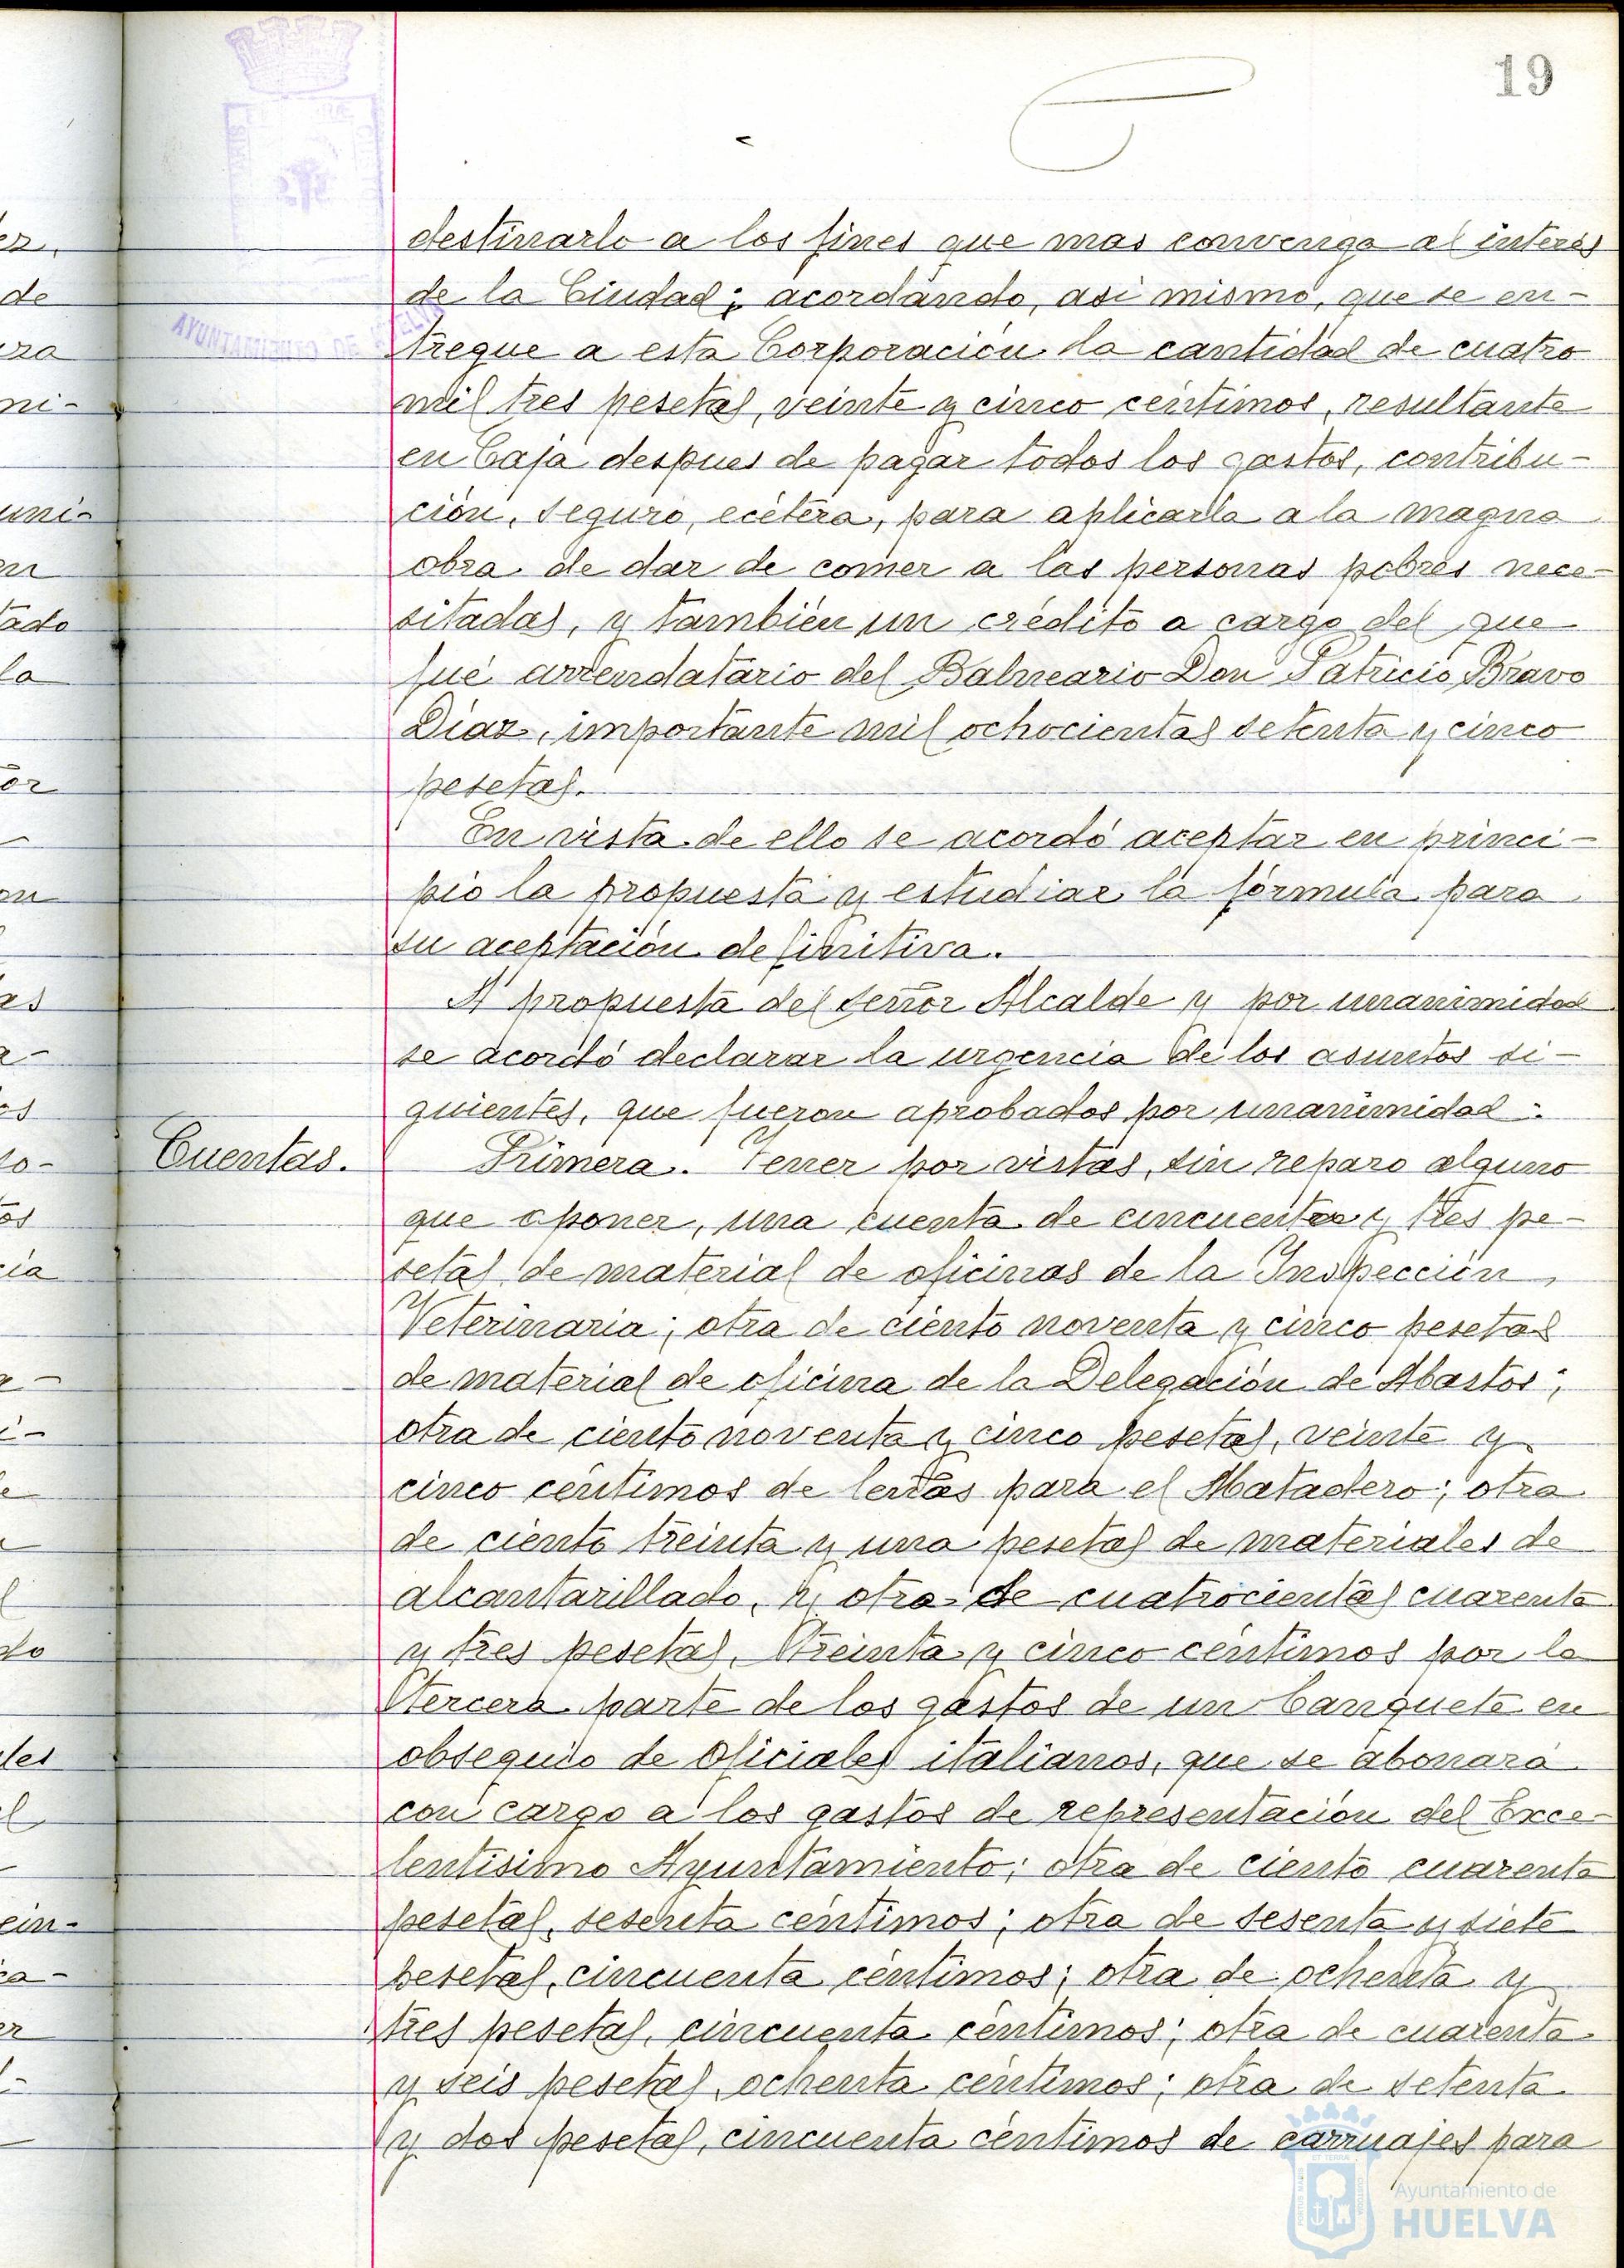 19
destinarlo a los fines que mas convenga al interés
de la Ciudad; acordando, asi mismo, que se en-
tregue a esta Corporación la cantidad de cuatro
mil tres pesetas, veinte y cinco céntimos, resultante
en Caja despues de pagar todos los gastos, contribu-
ción, seguro, ecétera, para aplicarla a la magna
obra de dar de comer a las personas pobres nece-
sitadas, y también un crédito a cargo del que
fué arrendatario del Balneario Don Patricio Bravo
Diaz, importante mil ochocientas setenta y cinco
pesetas.
En vista de ello se acordó aceptar en princi-
pio la propuesta y estudiar la fórmula para
su aceptación definitiva.
A propuesta del señor Alcalde y por unanimidad
se acordó declarar la urgencia de los asuntos si-
guientes, que fueron aprobados por unanimidad:
Cuentas.
Primera. Tener por vistas, sin reparo alguno
que oponer, una cuenta de cincuenta y tres pe-
setas de material de oficinas de la Inspección
Veterinaria; otra de ciento noventa y cinco pesetas
de material de oficina de la Delegación de Abastos;
otra de ciento noventa y cinco pesetas, veinte y
cinco céntimos de leñas para el Matadero; otra
de ciento treinta y una pesetas de materiales de
alcantarillado, y otra de cuatrocientas cuarenta
y tres pesetas, treinta y cinco céntimos por la
tercera parte de los gastos de un banquete en
obsequio de Oficiales italianos, que se abonará
con cargo a los gastos de representación del Exce-
lentisimo Ayuntamiento; otra de ciento cuarenta
pesetas, sesenta céntimos; otra de sesenta y siete
pesetas, cincuenta céntimos; otra de ochenta y
tres pesetas, cincuenta céntimos; otra de cuarenta
y seis pesetas, ochenta céntimos; otra de setenta
y dos pesetas, cincuenta céntimos de carruajes para
Ayuntamiento de
HUELVA